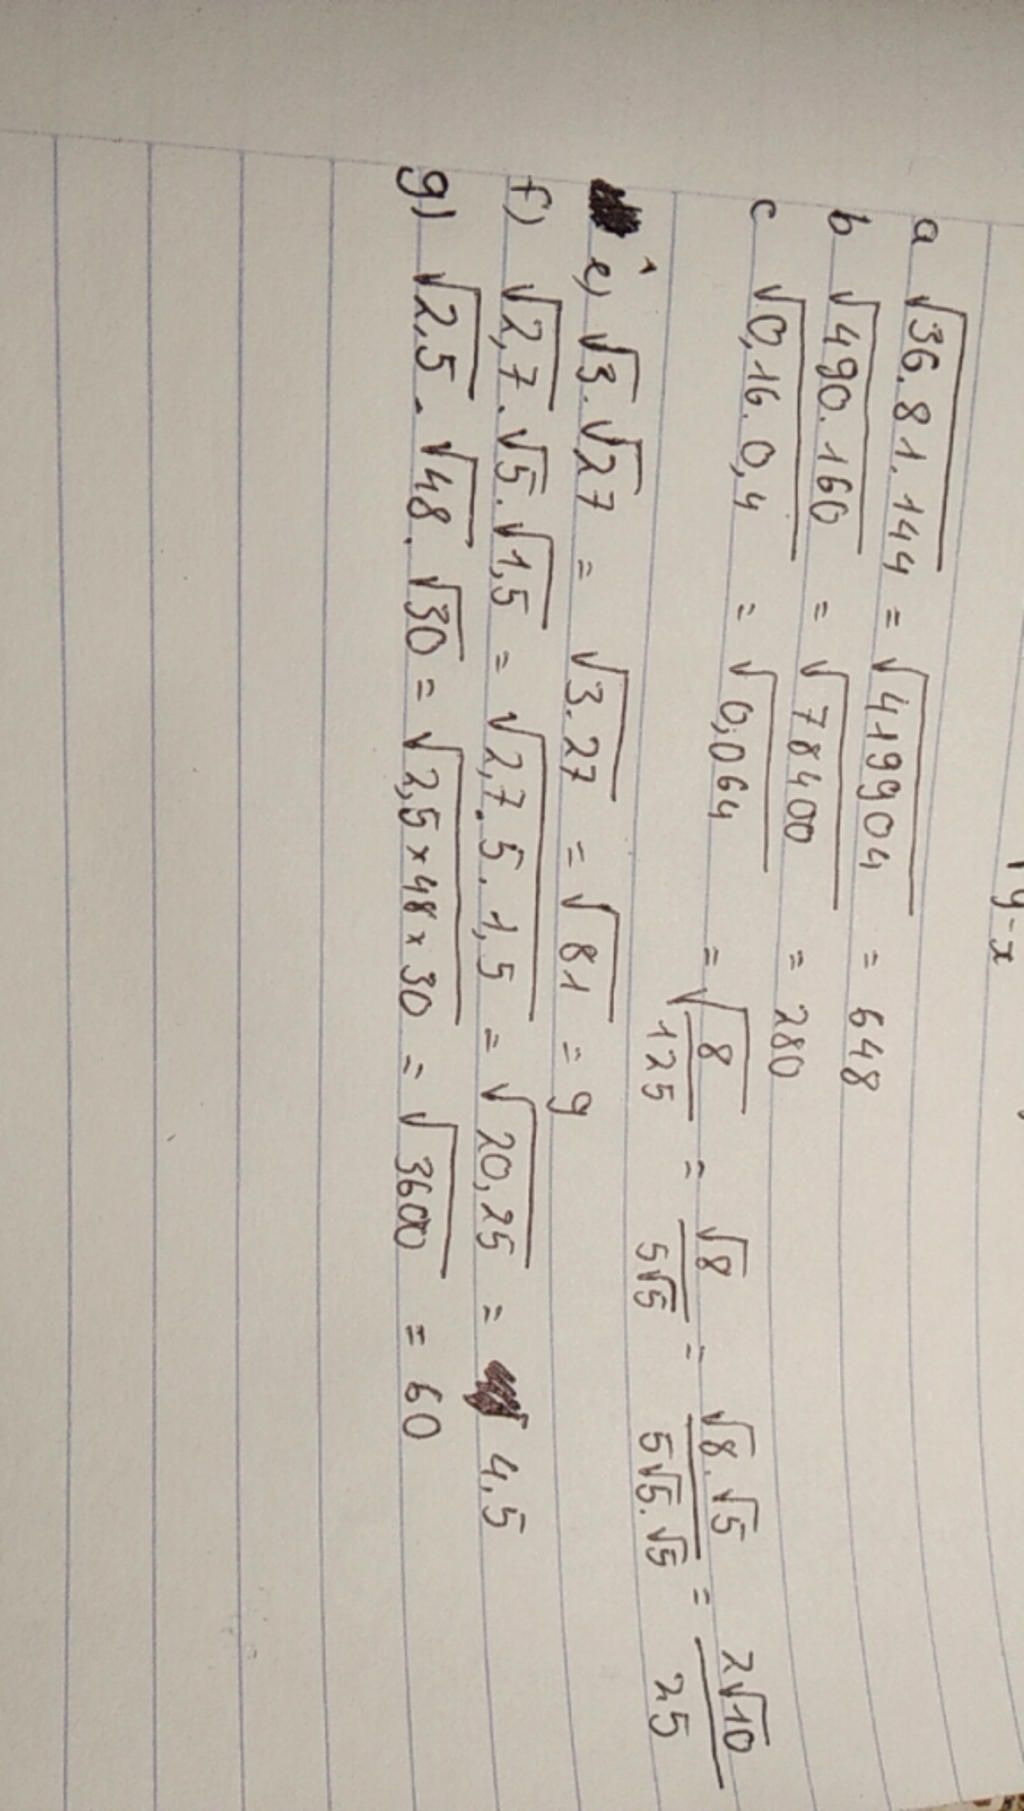 y-x
a √36.81.144 = √419904 = 648
b √490.160 = √78400 = 280
c √0,16.0,4 = √0,064 = √8/125 = √8/5√5 = √8.√5/5√5.√5 = 2√10/25
ê, √3.√27 = √3.27 = √81 = 9
f) √2,7.√5.√1,5 = √2,7.5.1,5 = √20,25 = 4,5
g) √2,5.√48.√30 = √2,5×48×30 = √3600 = 60